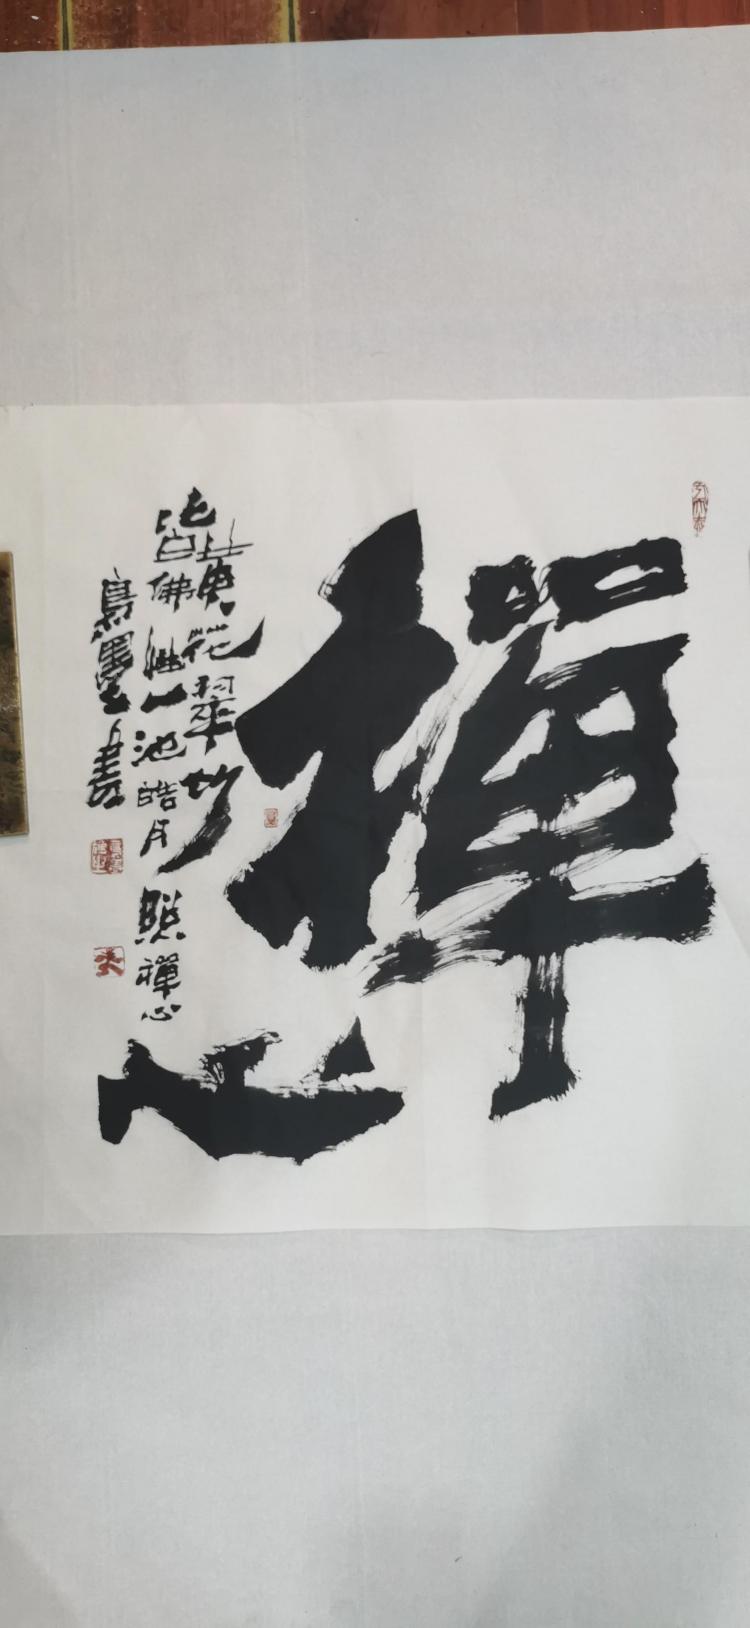 禪心
黄花翠竹
皆佛性一池皓月照禪心
墨書